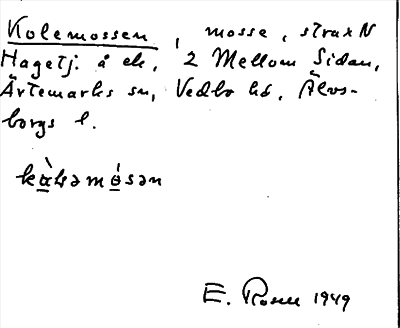 Kolemossen, mosse, strax N
Hagetj. å ek, 2 Mellom Sidan,
Ärtemarks sn, Vedbo hd, Älvs-
borgs l.
E. Rosen 1949